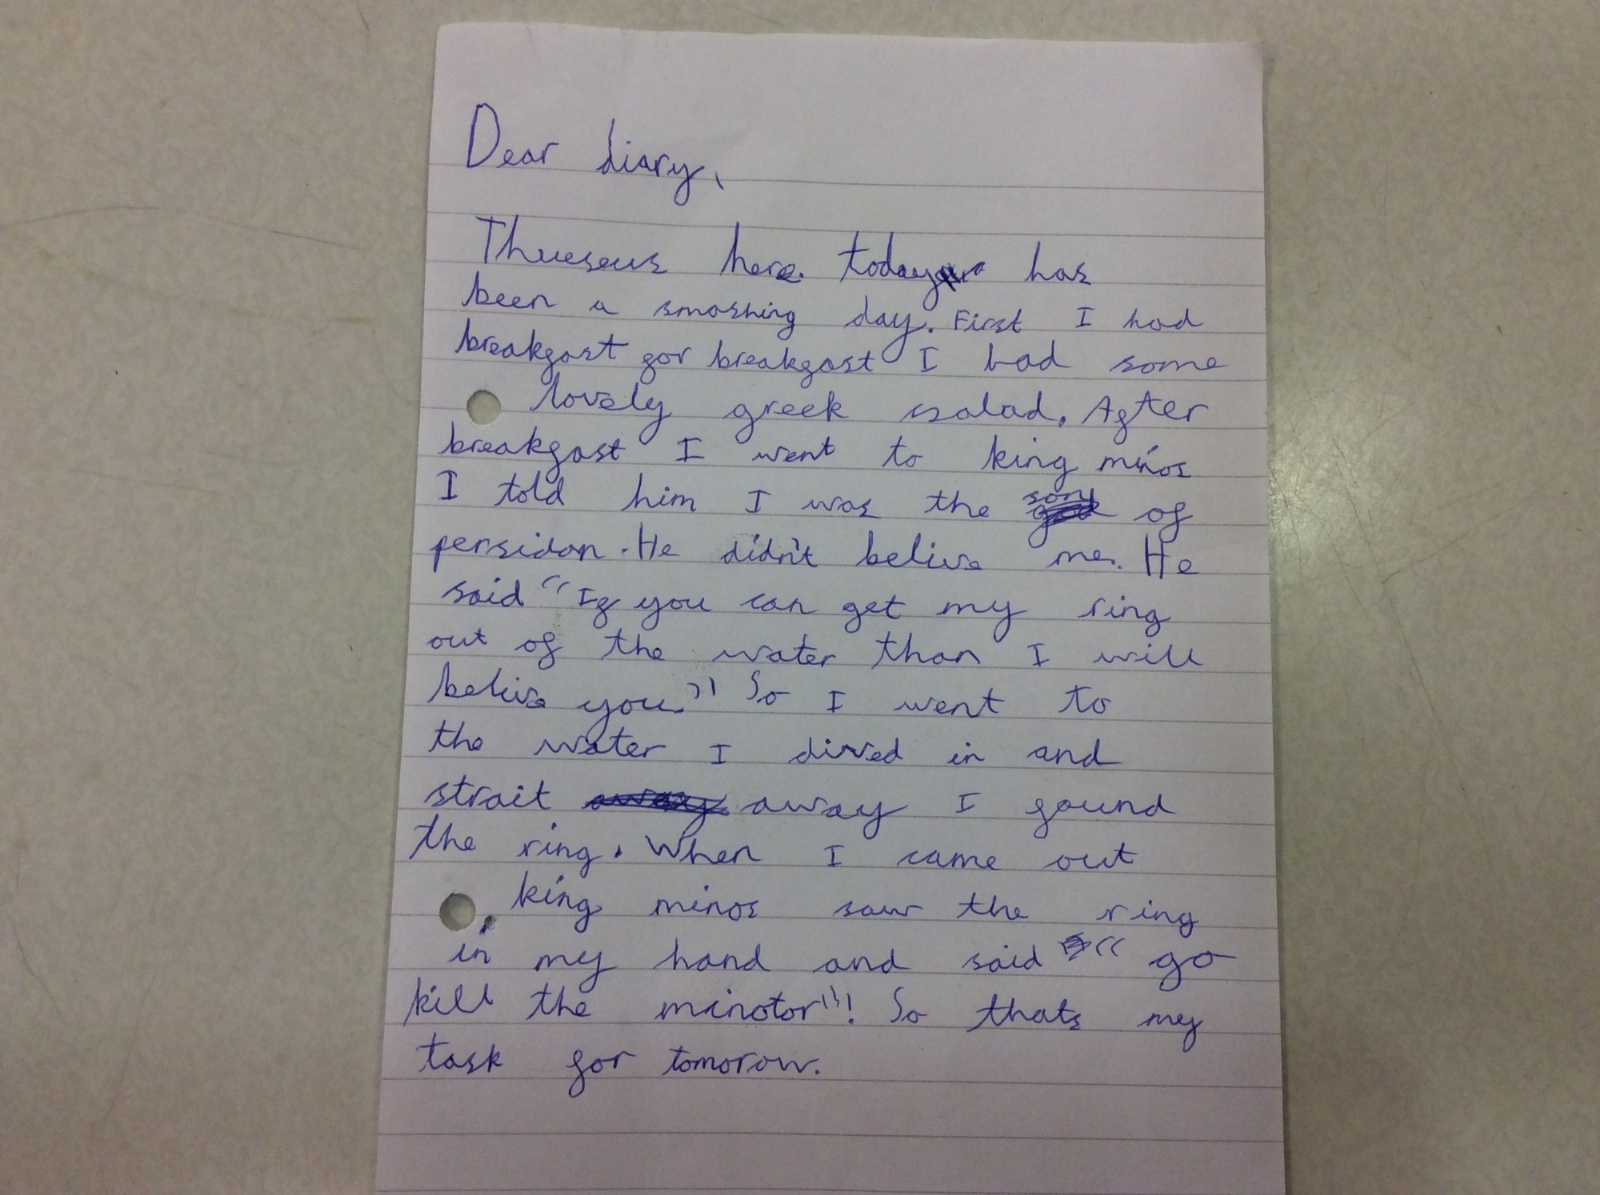 Dear diary,
Thueseus here. today has
been a smashing day. First I had
breakfast for breakfast I had some
lovely greek salad. After
breakfast I went to king minos
I told him I was the son of
persidon. He didn't belive me. He
said "If you can get my ring
out of the water than I will
belive you." So I went to
the water I dived in and
strait away I found
the ring. When I came out
king minos saw the ring
in my hand and said "go
kill the minotor"! So thats my
task for tomorow.